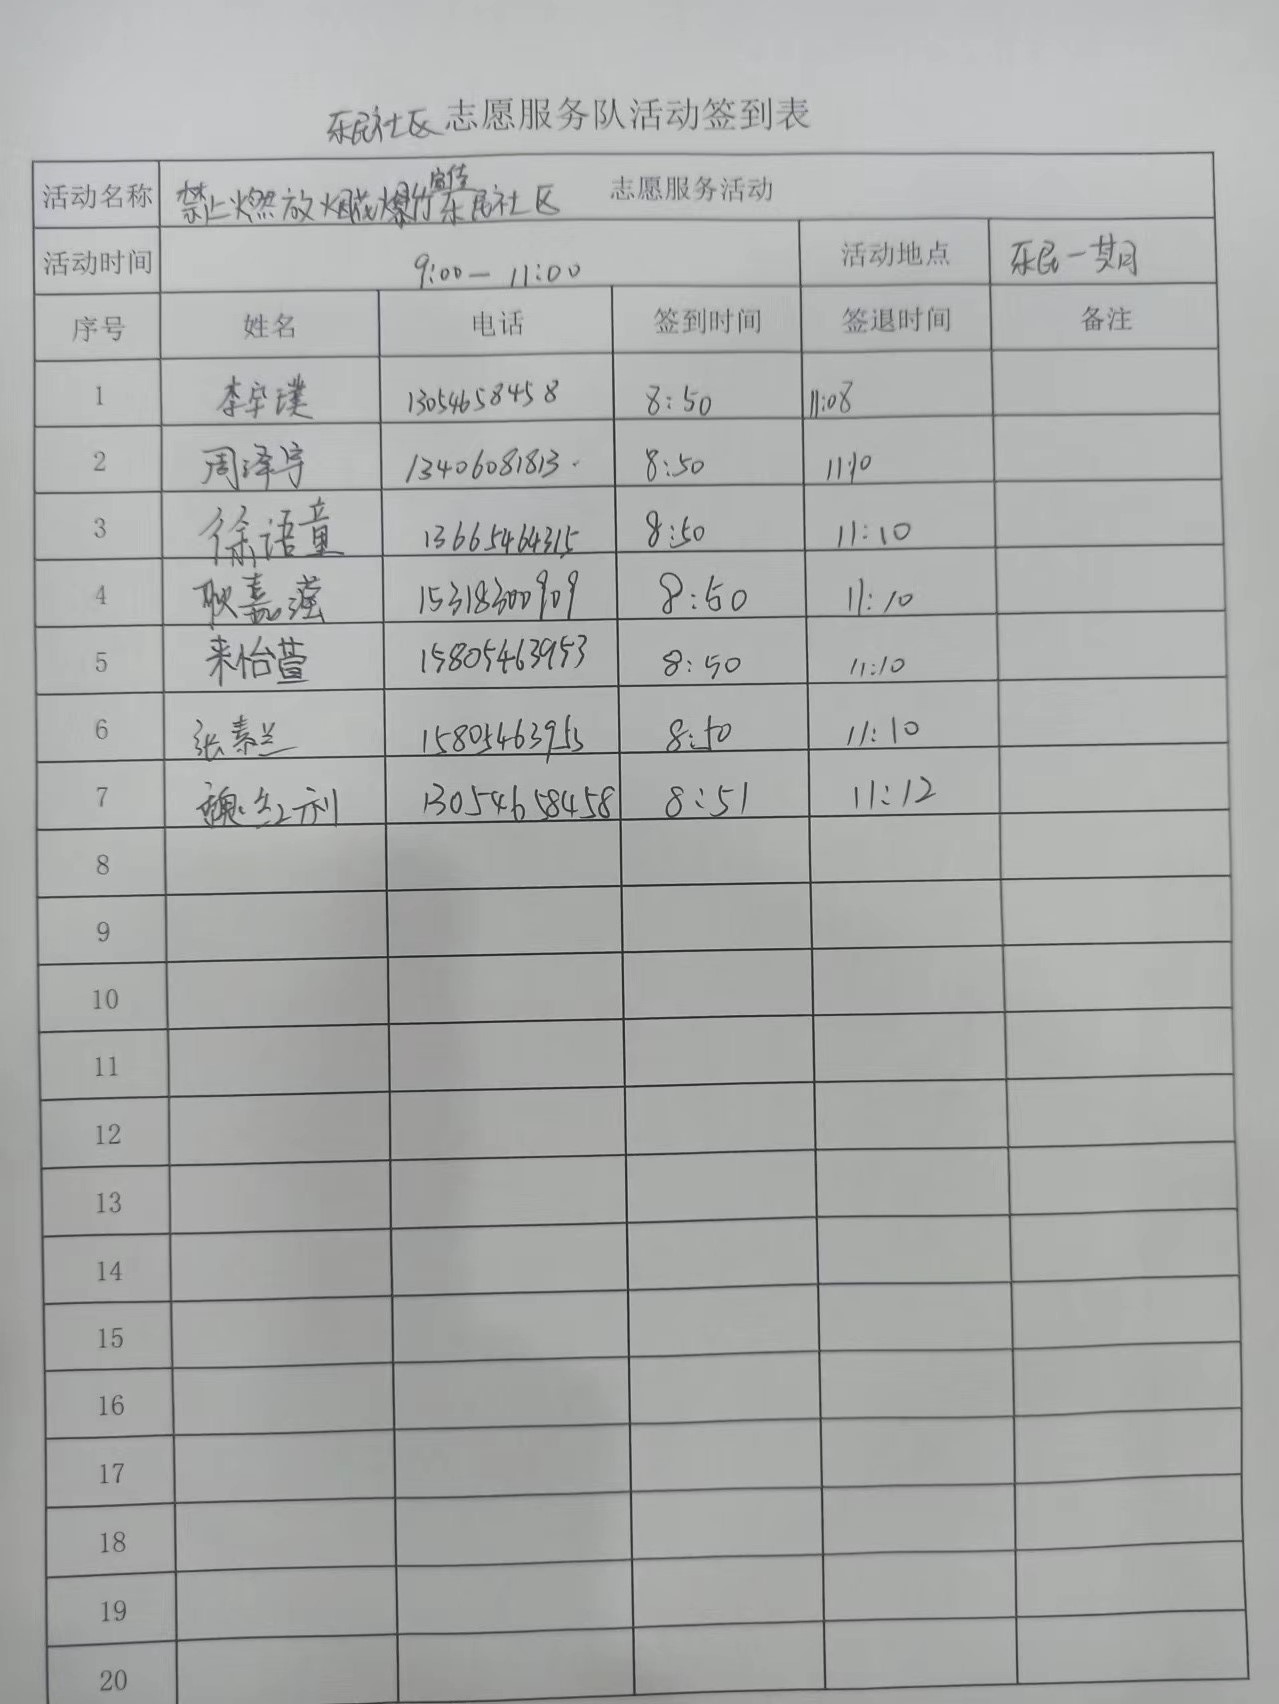 乐民社区志愿服务队活动签到表
活动名称 禁止燃放烟花爆竹宣传乐民社区 志愿服务活动
活动时间 9:00—11:00 活动地点 乐民一期
序号 姓名 电话 签到时间 签退时间 备注
1 李宇璞 13054658458 8:50 11:08
2 周泽宇 13406081813 8:50 11:10
3 徐语童 13665464315 8:50 11:10
4 耿嘉滢 15318300909 8:50 11:10
5 来怡萱 15805463953 8:50 11:10
6 张素兰 15805463953 8:50 11:10
7 魏红利 13054658458 8:51 11:12
8
9
10
11
12
13
14
15
16
17
18
19
20